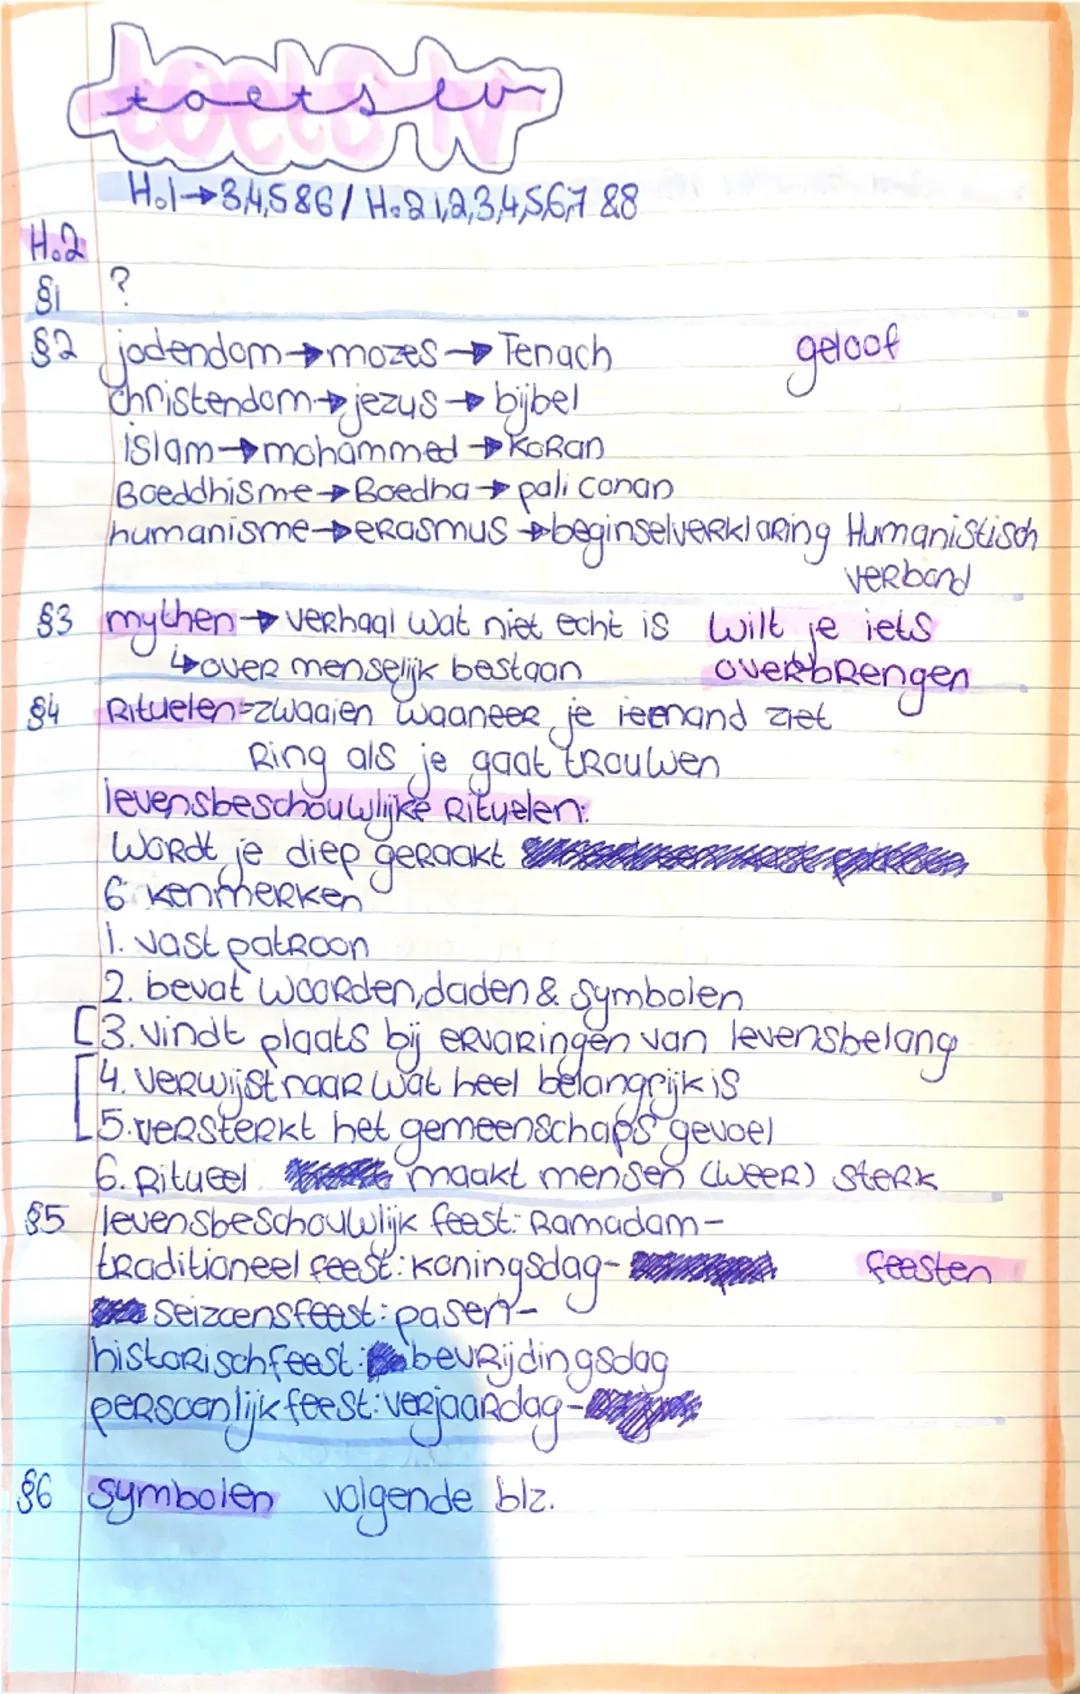 toets lv
H.1→3,4,5&6 / H.2 1,2,3,4,5,6,7 &8
H.2
§1 ?
§2 jodendom → mozes → Tenach geloof
christendom → jezus → bijbel
islam → mohammed → koran
Boeddhisme → Boedha → pali conan
humanisme → erasmus → beginselverklaring Humanistisch
verbond
§3 mythen → verhaal wat niet echt is wilt je iets
↳ over menselijk bestaan overbrengen
§4 Rituelen = zwaaien waaneer je iemand ziet
Ring als je gaat trouwen
levensbeschouwlijke Rituelen:
wordt je diep geraakt
6 kenmerken
1. vast patroon
2. bevat woorden, daden & symbolen
3. vindt plaats bij ervaringen van levensbelang
4. verwijst naar wat heel belangrijk is
5. versterkt het gemeenschaps gevoel
6. Ritueel maakt mensen (weer) sterk
§5 levensbeschouwlijk feest: Ramadam -
traditioneel feest: koningsdag - feesten
seizoensfeest: pasen -
historisch feest: bevrijdingsdag
persoonlijk feest: verjaardag -
§6 symbolen volgende blz.